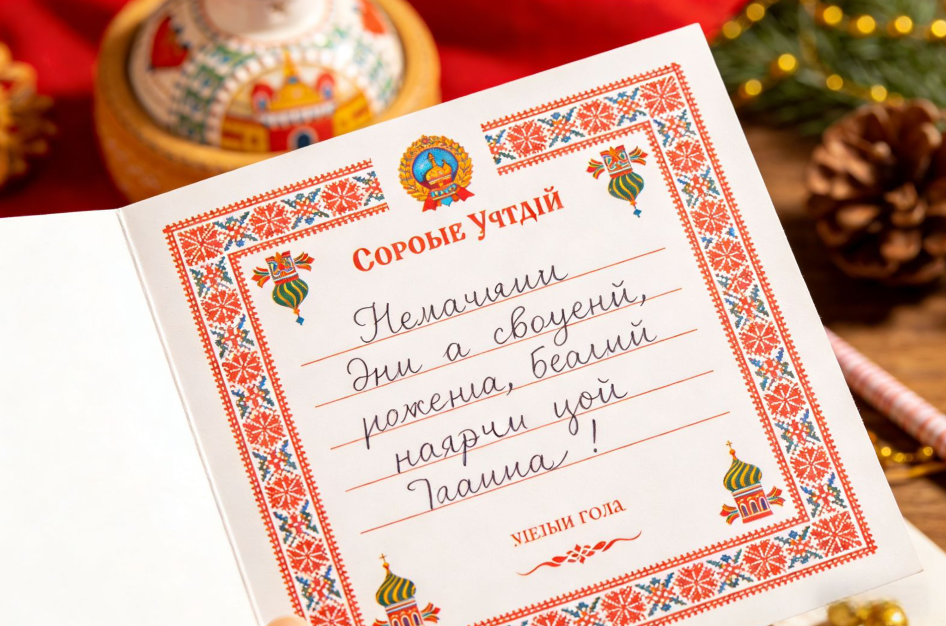 Сороые Учтдій
Немачиани
Дни а своценй,
рожениа, Беалий
наярчи цой
Таалина!
үіеӏыи гола